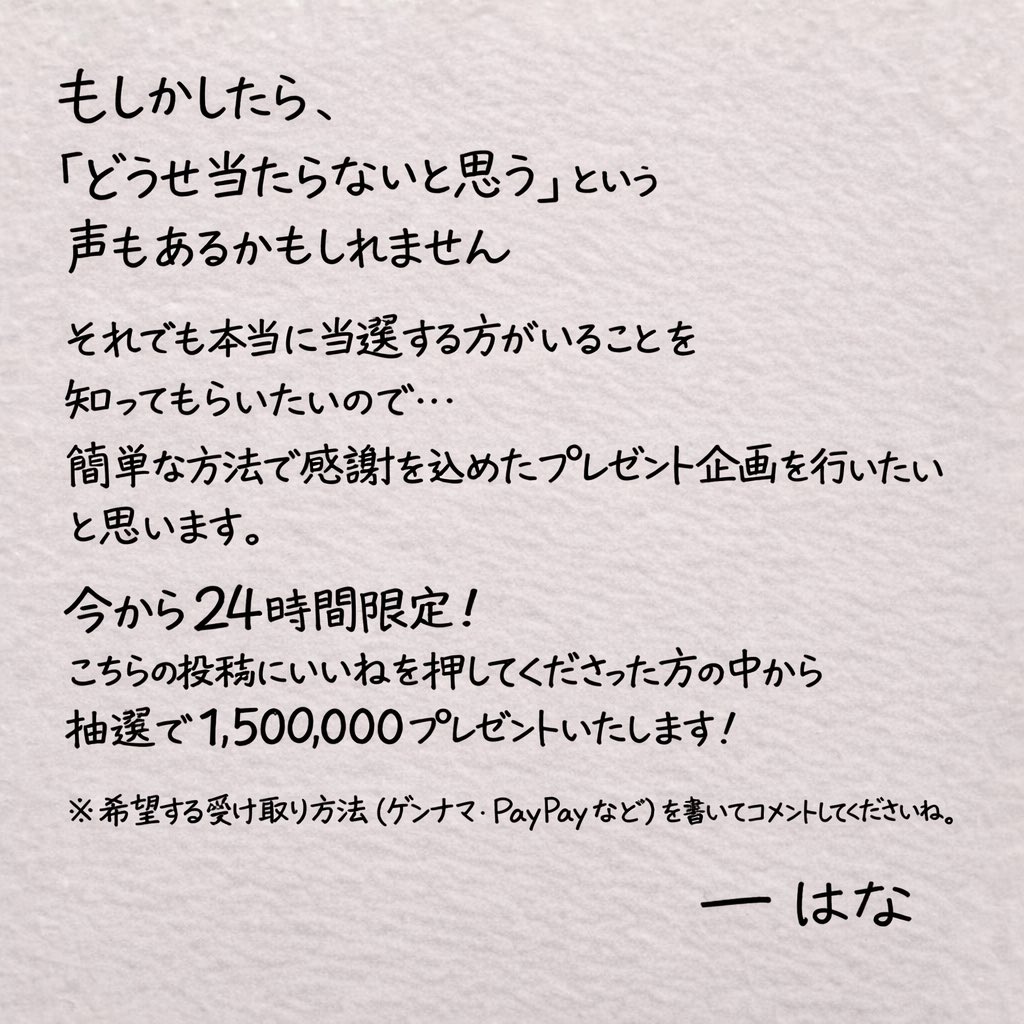 もしかしたら、
「どうせ当たらないと思う」という
声もあるかもしれません
それでも本当に当選する方がいることを
知ってもらいたいので…
簡単な方法で感謝を込めたプレゼント企画を行いたい
と思います。
今から24時間限定！
こちらの投稿にいいねを押してくださった方の中から
抽選で1,500,000プレゼントいたします！
※希望する受け取り方法(ゲンナマ・PayPayなど)を書いてコメントしてくださいね。
― はな